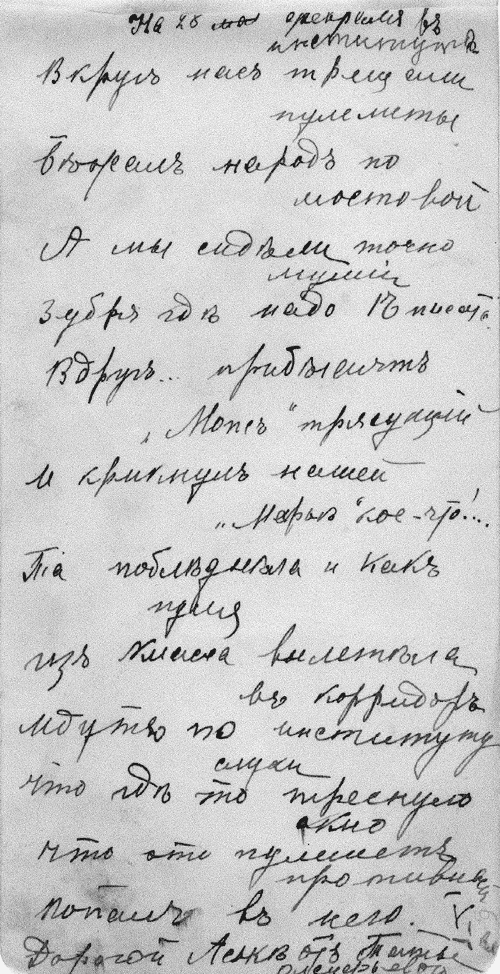 На 28 февраля въ
институтѣ
Вкругъ насъ трещали
пулеметы
Бѣжалъ народъ по
мостовой
А мы сидѣли точно
муміи
Зубря гдѣ надо Ѣ писать
Вдругъ... прибѣгаетъ
„Мопсъ" трясущій
И крикнулъ нашей
„Марьѣ" кое-что!...
Та поблѣднѣла и какъ
пуля
изъ класса вылетѣла
въ корридоръ
Идутъ по институту
слухи
что гдѣ то треснуло
окно
что это пулеметъ
противный
попалъ въ него.
Дорогой Аськѣ отъ Тани